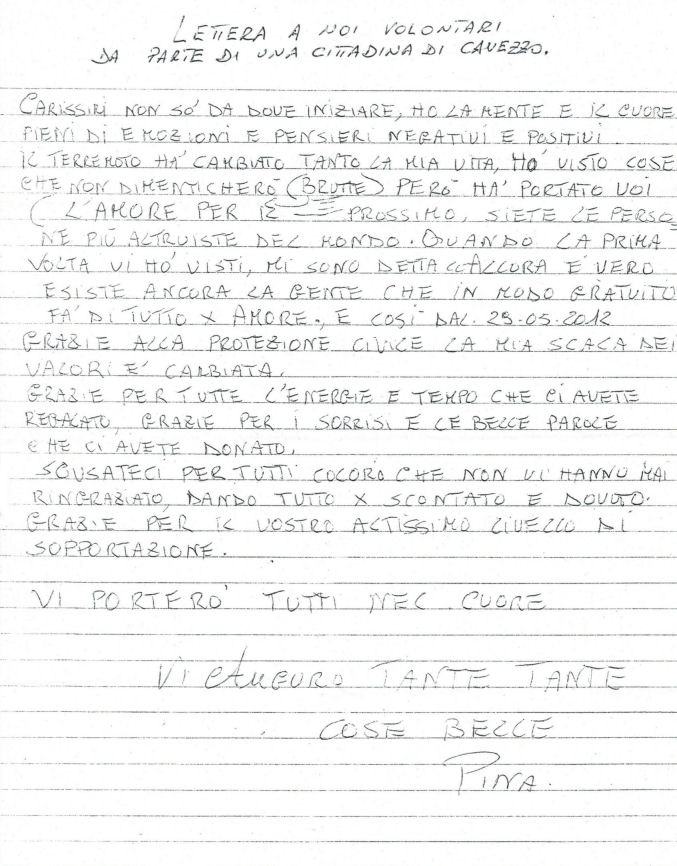 LETTERA A NOI VOLONTARI
DA PARTE DI UNA CITTADINA DI CAVEZZO.
CARISSIMI NON SO' DA DOVE INIZIARE, HO LA MENTE E IL CUORE
PIENI DI EMOZIONI E PENSIERI NEGATIVI E POSITIVI.
IL TERREMOTO HA' CAMBIATO TANTO LA MIA VITA, HO' VISTO COSE
CHE NON DIMENTICHERÒ (BRUTTE) PERÒ HA' PORTATO VOI
(L'AMORE PER IL PROSSIMO, SIETE LE PERSO
NE PIÙ ALTRUISTE DEL MONDO. QUANDO LA PRIMA
VOLTA VI HO' VISTI, MI SONO DETTA "ALLORA E' VERO
ESISTE ANCORA LA GENTE CHE IN MODO GRATUITO
FA' DI TUTTO X AMORE., E COSÌ DAL. 29-05-2012
GRAZIE ALLA PROTEZIONE CIVILE LA MIA SCALA DEI
VALORI E' CAMBIATA.
GRAZIE PER TUTTE L'ENERGIE E TEMPO CHE CI AVETE
REGALATO, GRAZIE PER I SORRISI E LE BELLE PAROLE
CHE CI AVETE DONATO.
SCUSATECI PER TUTTI COLORO CHE NON VI HANNO MAI
RINGRAZIATO, DANDO TUTTO X SCONTATO E DOVUTO.
GRAZIE PER IL VOSTRO ALTISSIMO LIVELLO DI
SOPPORTAZIONE.
VI PORTERO' TUTTI NEL CUORE
VI AUGURO TANTE TANTE
COSE BELLE
PINA.